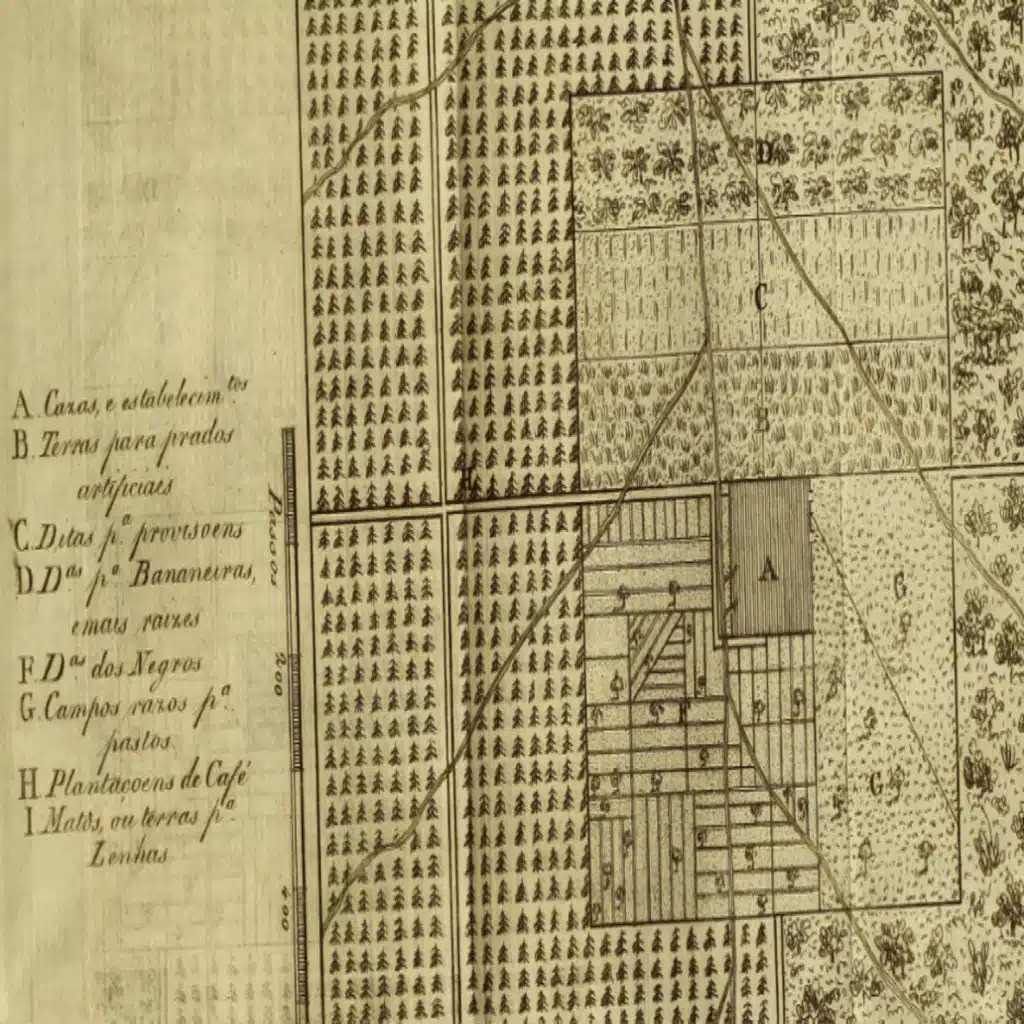 A. Cazas, e estabelecim.tos
B. Terras para prados
artificiaes
C. Ditas p.a provisoens
D. D.as p.a Bananeiras,
e mais raizes
F. D.as dos Negros
G. Campos razos p.a
pastos.
H. Plantaçoens de Café
I. Matos, ou terras p.a
Lenhas
Passos
200
400
D
C
B
H
A
G
G